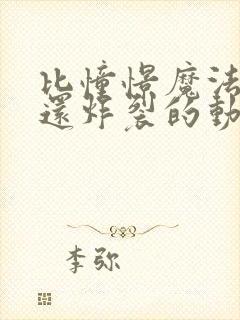 比憧憬魔法
還炸裂的動
李弥